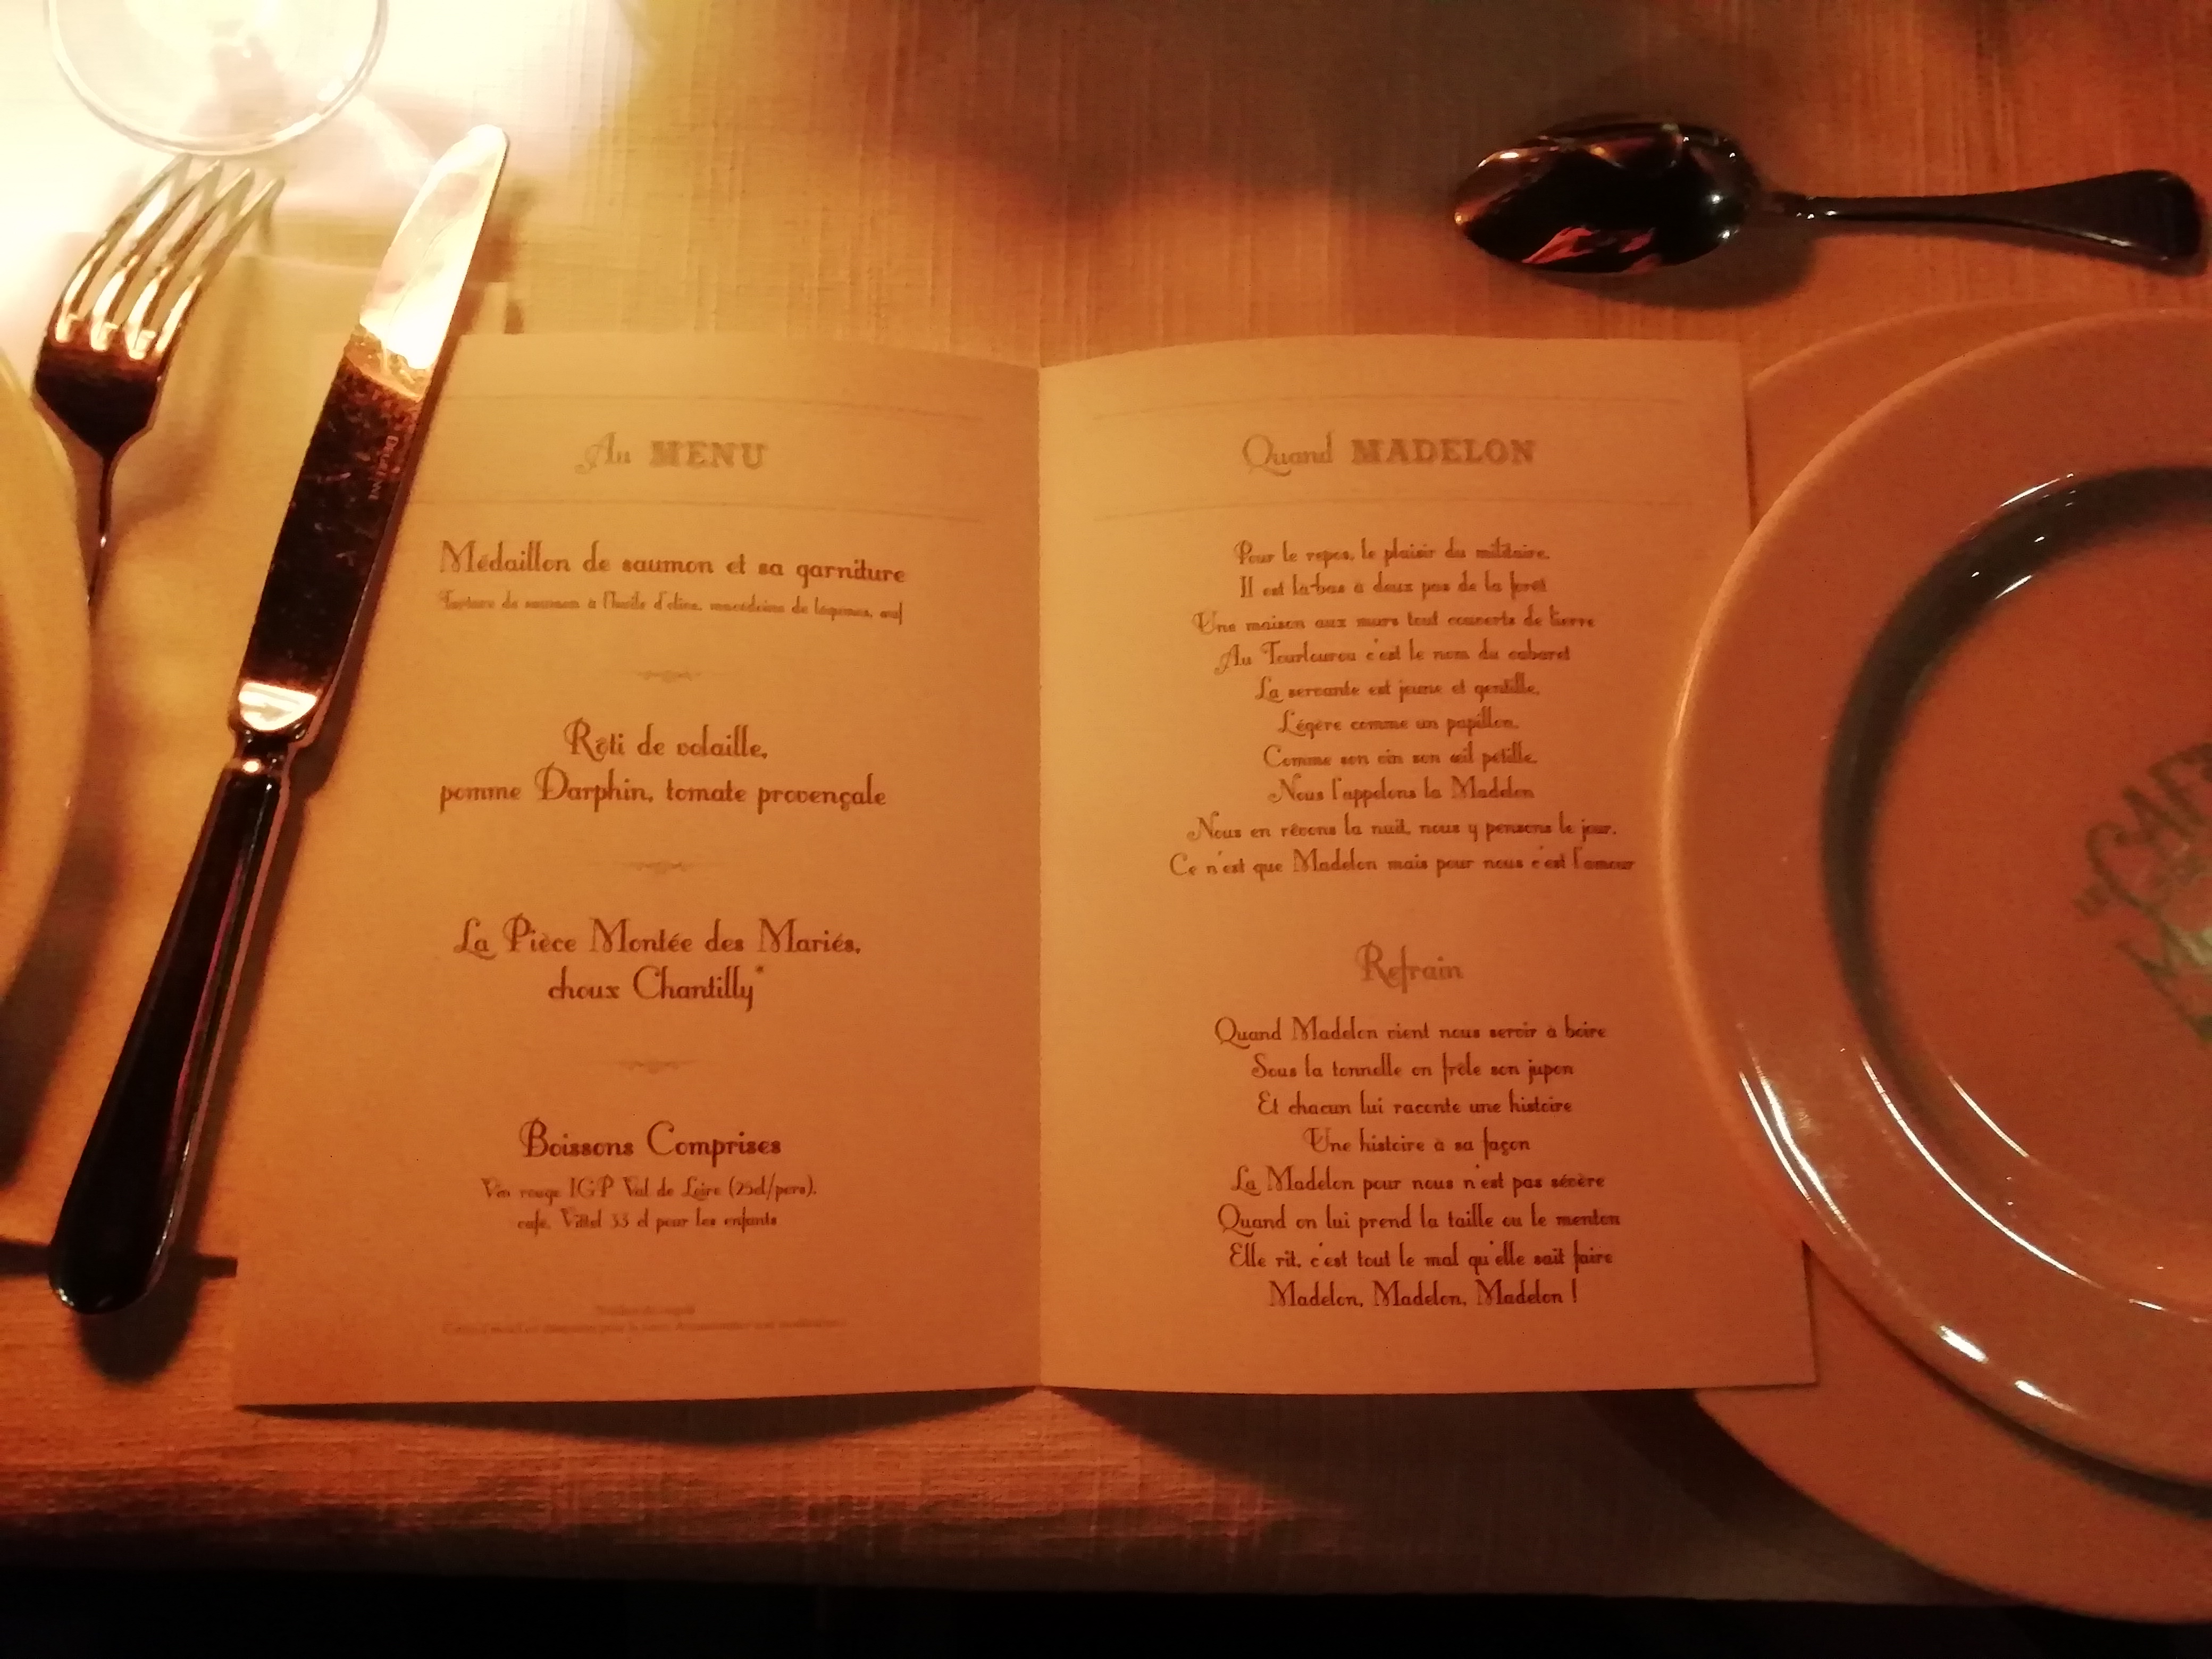 Au MENU
Médaillon de saumon et sa garniture
Tartare de saumon à l'huile d'olive, macédoine de légumes, œuf
Rôti de volaille,
pomme Darphin, tomate provençale
La Pièce Montée des Mariés,
choux Chantilly*
Boissons Comprises
Vin rouge IGP Val de Loire (25cl/pers),
café, Vittel 33 cl pour les enfants
Quand MADELON
Pour le repos, le plaisir du militaire,
Il est là-bas à deux pas de la forêt
Une maison aux murs tout couverts de lierre
Au Tourlourou c'est le nom du cabaret
La servante est jeune et gentille,
Légère comme un papillon,
Comme son vin son œil pétille,
Nous l'appelons la Madelon
Nous en rêvons la nuit, nous y pensons le jour,
Ce n'est que Madelon mais pour nous c'est l'amour
Refrain
Quand Madelon vient nous servir à boire
Sous la tonnelle on frôle son jupon
Et chacun lui raconte une histoire
Une histoire à sa façon
La Madelon pour nous n'est pas sévère
Quand on lui prend la taille ou le menton
Elle rit, c'est tout le mal qu'elle sait faire
Madelon, Madelon, Madelon !